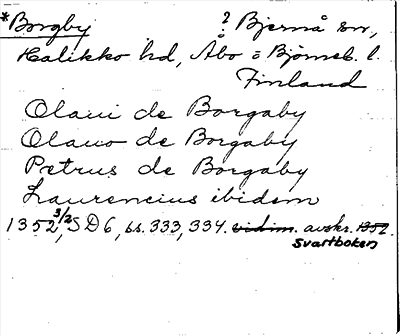 *Borgby ? Bjernå sn,
Halikko hd, Åbo o Björneb. l.
Finland
Olaui de Borgaby
Olauo de Borgaby
Petrus de Borgaby
Laurencius ibidem
1352 3/2, SD6, s.s. 333, 334. vidim. avskr. 1352.
Svartboken